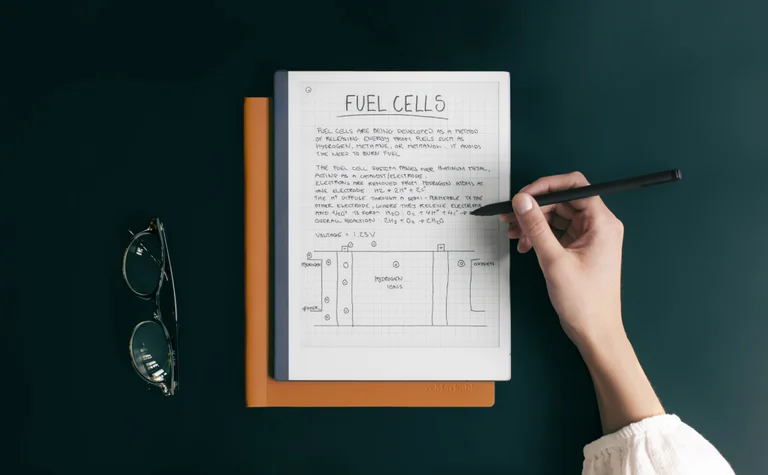 FUEL CELLS
FUEL CELLS ARE BEING DEVELOPED AS A METHOD
OF RELEASING ENERGY FROM FUELS SUCH AS
HYDROGEN, METHANE, OR METHANOL. IT AVOIDS
THE NEED TO BURN FUEL
THE FUEL CELL SYSTEM PASSES OVER PLATINUM METAL,
ACTING AS A CATALYST/ELECTRODE.
ELECTRONS ARE REMOVED FROM HYDROGEN ATOMS AT
ONE ELECTRODE:
THE H⁺ DIFFUSE THROUGH A SEMI-PERMEABLE TO THE
OTHER ELECTRODE, WHERE THEY RECEIVE ELECTRONS
TO FORM H₂O
OVERALL REACTION:
VOLTAGE = 1.23V
HYDROGEN
HYDROGEN
IONS